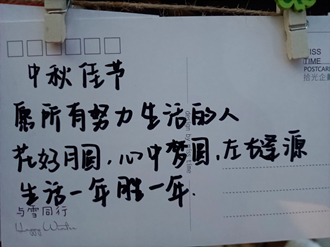 中秋佳节
愿所有努力生活的人
花好月圆，心中梦圆，左右逢源
生活一年胜一年.
与雪同行
TIME
POSTCARD
拾光企劃